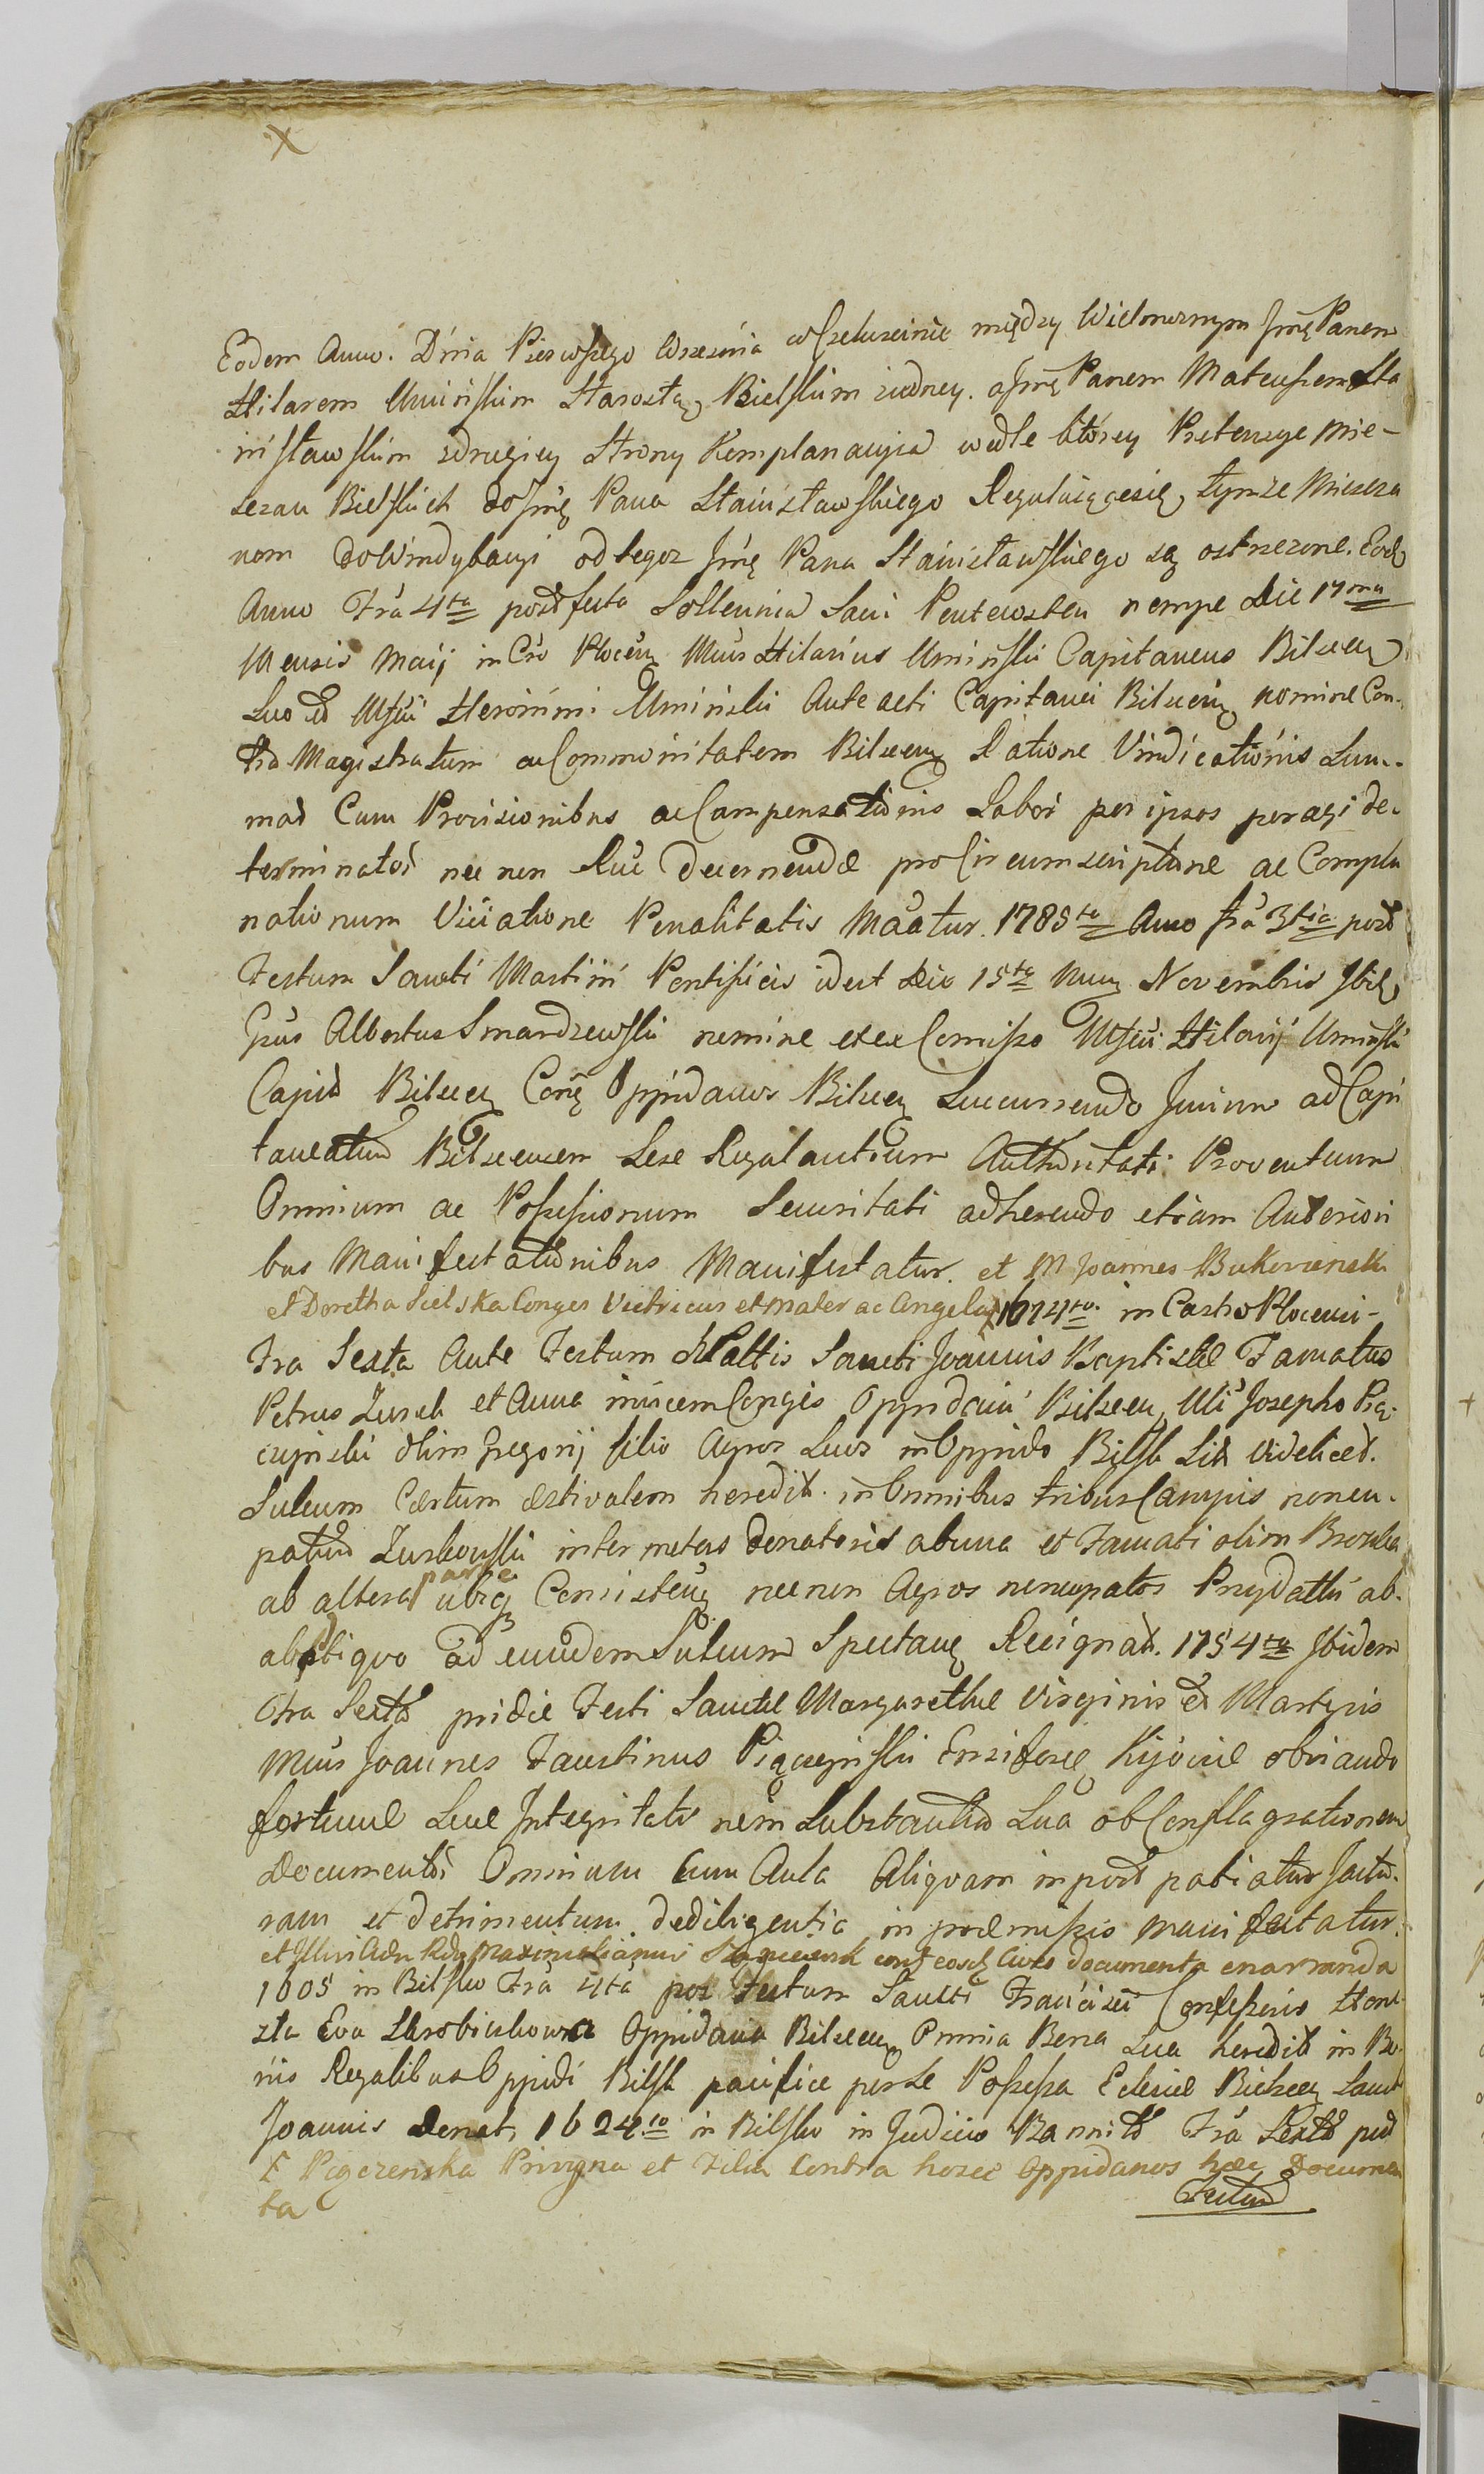 X
Eodem Anno. Dnia Pierwszego Września w Szeluscinie między Wielmoznym Jmę Panem
Hilarem Uminskim Starostą Bielskim jedney. a Jmę Panem Mateuszem Sta
nisławskim zdrugiey Strony Komplanacyia wedle ktorey Pretensye Mie-
szczan Bielskich do Jmę Pana Stanisławskiego Regulujące się, tymze Mieszcza
nom do Windykacyi od tegoz Jmę Pana Stanisławskiego są ostrzezone. Eod
Anno Fra 4ta post festa Sollennia Sacri Pentecosten nempe Die 17ma
Mensis Maij in Cro Plocen Mcus Hilarius Uminski Capitaneus Bilscen
Suo et Mfci Heronimi Uminski Ante acti Capitanei Bilscen nomine Con-
tra Magistratum ac Communitatem Bilscen Ratione Vindicationis Sum-
mar Cum Provisionibus ac Compensationis Labor per ipsos peragi de-
terminator nec non Rac decernendæ pro Circumscriptione ac Compla
nationum Viciatione Penalitatis Maatur. 1785to Anno fra 3tia post
Festum Sancti Martini Pontificis id est Die 15ta Mensis Novembris Ibid
Gsus Albertus Smardzewski nomine et ex Comisso Mfci Hilarij Uminski
Capit Bilscen Conę Oppidanos Bilscen Succurrendo Jurium ad Capi
taneatum Bilscensem Sese Regulantium Authoritati Proventuum
Omnium ac Possessionum Securitati adherendo etiam Anteriori
bus Manifestationibus Manifestatur. et M Joannes Bukowienski
et Dorotha Sielska Conges Vietricus et Mater ac Angela 1674to. in Castro Plocensi-
Fra Sexta Ante Festum Nattis Sancti Joannis Baptistæ Famatus
Petrus Zurek et Anna invicem Conges Oppidani Bilscen, Mci Josepho Pią-
czynski olim Gregorij filio Agros Suos in Oppido Bilsk Sitt Videliced.
Sulcum Certum Estivalem heredit. in Omnibus tribus Campis noncu-
patum Zurkowski inter metas donatoris ab una et Famati olim Brozka
ab altera parte ubiq Consisten nec non Agros noncupatos Przydatki ab.
ab antiquo ad eundem Sulcum Spectan Resignat. 1754to Ibidem
Fra Sexta pridie Festi Sanctæ Margarethæ Virginis et Martyris
Mcus Joannes Faustinus Piączynski Ensifere Kijoviæ obviando
fortunæ Suæ Integritati nem Substantia Sua ob Conflagrationem
Documentor Omnium Cum Aula Aliqvam in post patiatur Jactu-
ram et detrimentum de diligentia in præmissis manifestatur.
et Illusi Adm Rdg Maximilianus cont eosd Cives documenta enarranda
1605 in Bilsko Fra 4ta post Festum Sancti Francisci Confessoris Hone-
sta Eva Skrobiszkowa Oppidana Bilscen Omnia Bona Sua heredit in Bo-
nis Regalibus Oppidi Bilsk pacifice per se Possessa Eclesiæ Bielscen Sanct
Joannis Donat, 1624to in Bilsko in Judicio Bannito Fra Sexta post
F Pigczenska Privigna et Filia Contra hosce Oppidanos hæc Documen
ta
Festum